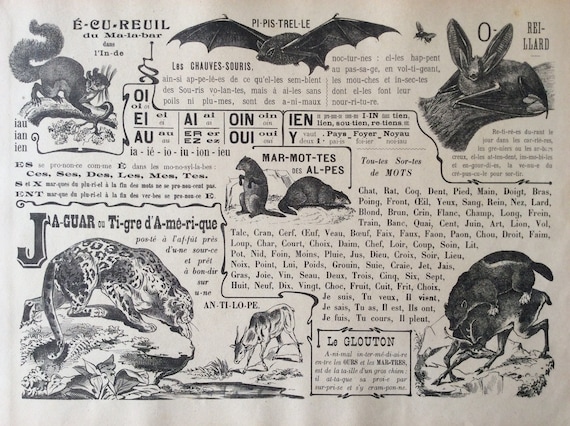 É-CU-REUIL
du Ma-la-bar
dans
l'In-de
PI-PIS-TREL-LE
O-
REIL-
LARD
Les CHAUVES-SOURIS,
ain-si ap-pe-lé-es de ce qu'el-les sem-blent
des Sou-ris vo-lan-tes, mais à ai-les sans
poils ni plu-mes, sont des a-ni-maux
noc-tur-nes : el-les hap-pent
au pas-sa-ge, en vol-ti-geant,
les mou-ches et in-sec-tes
dont el-les font leur
nour-ri-tu-re.
S
OI oi
EI ei AI ai OIN oin IEN
AU au ER er EZ ez OUI oui Y vaut deux i Pays Foyer Noyau
iau
ian
ien
ia - ié - io - iu - ion - ieu
ES se pro-non-ce com-me È dans les mo-no-syl-la-bes :
Ces, Ses, Des, Les, Mes, Tes.
S et X mar-ques du plu-ri-el à la fin des mots ne se pro-non-cent pas.
ENT mar-que du plu-ri-el à la fin des ver-bes se pro-non-ce E.
MAR-MOT-TES
DES AL-PES
Tou-tes Sor-tes
de MOTS
JA-GUAR ou Ti-gre d'A-mé-ri-que
pos-té à l'af-fût près
d'u-ne sour-ce
et prêt
à bon-dir
sur
u-ne
AN-TI-LO-PE.
Chat, Rat, Coq, Dent, Pied, Main, Doigt, Bras,
Poing, Front, Œil, Yeux, Sang, Rein, Nez, Lard,
Blond, Brun, Crin, Flanc, Champ, Long, Frein,
Train, Banc, Quai, Cent, Juin, Art, Lion, Vol,
Talc, Cran, Cerf, Œuf, Veau, Bœuf, Faix, Faux, Faon, Paon, Chou, Droit, Faim,
Loup, Char, Court, Choix, Daim, Chef, Loir, Coup, Soin, Lit.
Pot, Nid, Foin, Moins, Pluie, Jus, Dieu, Croix, Soir, Lieu,
Noix, Point, Lui, Poids, Grouin, Suie, Craie, Jet, Jais,
Gras, Joie, Vin, Seau, Deux, Trois, Cinq, Six, Sept,
Huit, Neuf, Dix, Vingt, Choc, Fruit, Cuit, Frit, Choix,
Je suis, Tu veux, Il vient,
Je sais, Tu as, Il est, Ils ont,
Je fuis, Tu cours, Il pleut,
Le GLOUTON
A-ni-mal in-ter-mé-di-ai-re
en-tre les OURS et les MAR-TRES,
est de la tail-le d'un gros chien.
il at-ta-que sa proi-e par
sur-pri-se et s'y cram-pon-ne.